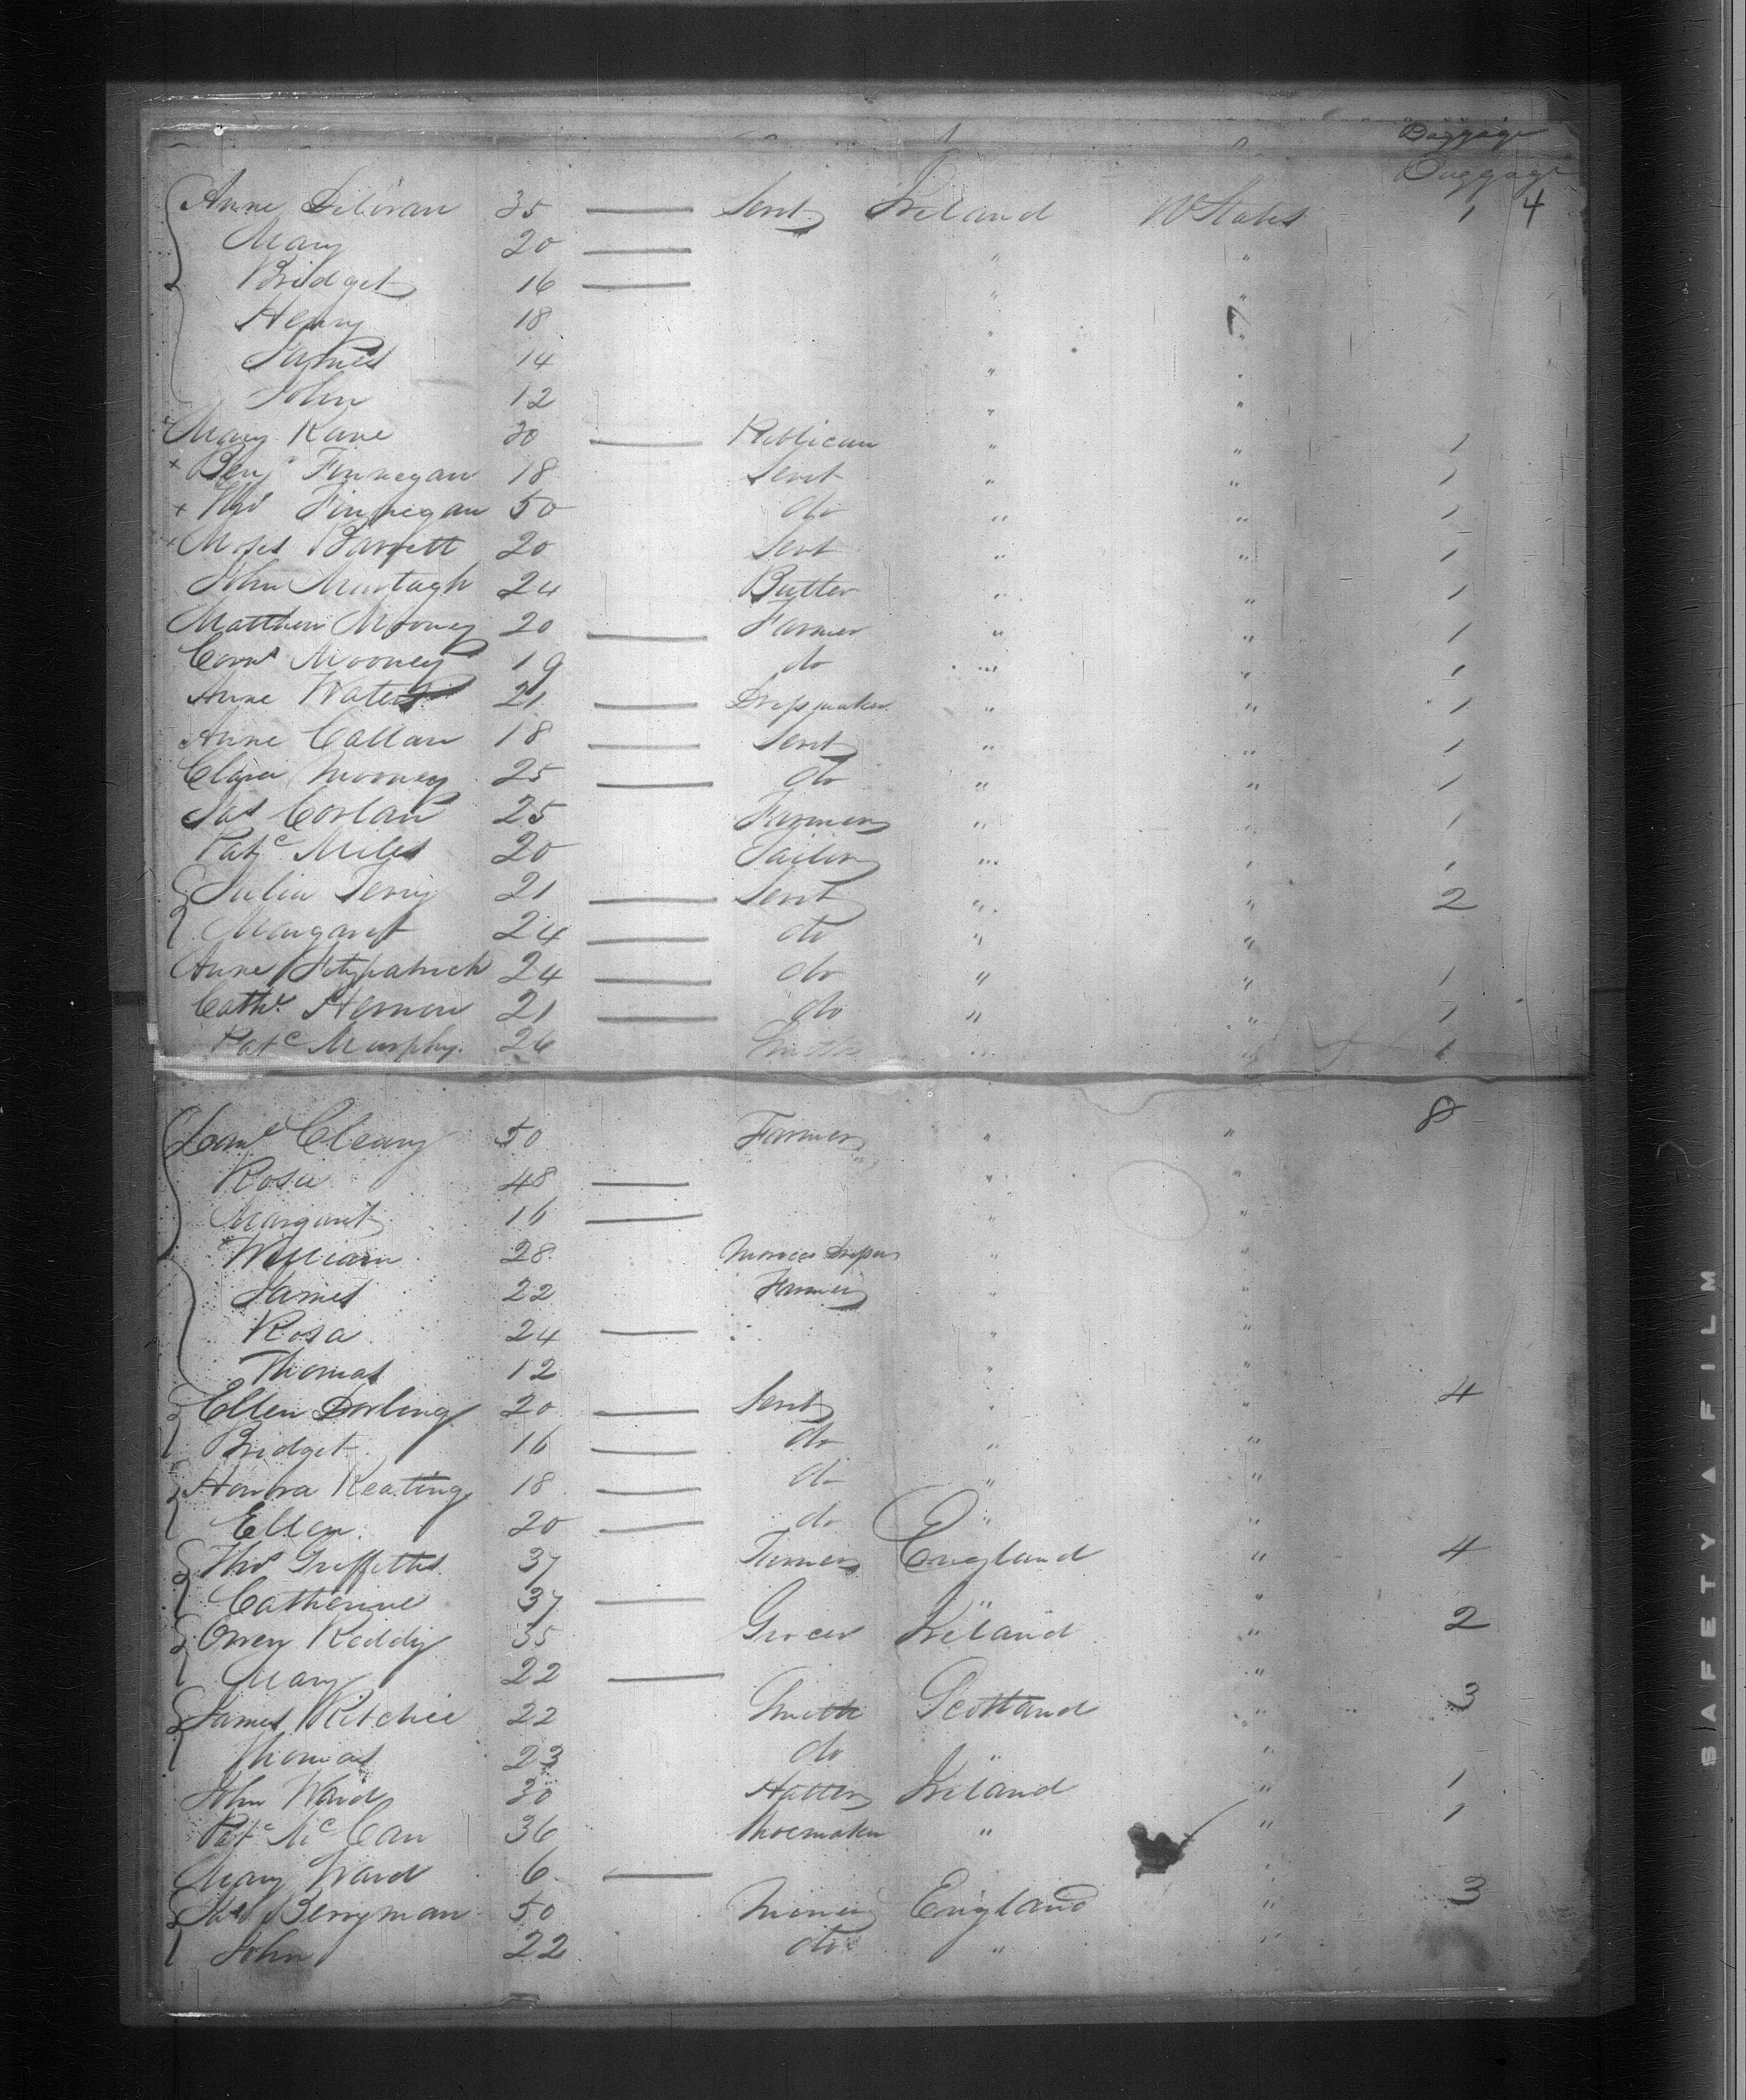 Baggage
Baggage
Anne 35 — Servt Ireland U States 1 4
Mary 20 — " "
Bridget 16 — " "
Henry 18 " "
James 14 " "
John 12 " "
Mary Kane 30 — Publican " " 1
+ Benjn Finnegan 18 Servt " " 1
+ Thos Finnegan 50 do " " 1
+ Moses Barrett 20 Servt " " 1
John Murtagh 24 Butler " " 1
Matthew Mooney 20 — Farmer " " 1
Corns Mooney 19 do " " 1
Anne Waters 21 — Dressmaker " " 1
Anne Callan 18 — Servt " " 1
Clara Mooney 25 — do " " 1
Jas Corlan 25 Farmer " " 1
Patc Miles 20 Tailor " " 1
Julia Terry 21 — Servt " " 2
Margaret 24 — do " "
Anne Fitzpatrick 24 — do " " 1
Cathe Hernon 21 — do " " 1
Patc Murphy 26 " " 1
Cleary 50 Farmer " " 8
Rosa 48 — " "
Margaret 16 — " "
William 28 Morocco Dresser " "
James 22 Farmer " "
Rosa 24 — " "
Thomas 12 " "
Ellen Dorling 20 — Servt " " 4
Bridget 16 — do " "
Honora Keating 18 — do " "
Ellen 20 — do " "
Thos Greffeths 37 Turner England " 4
Catherine 37 — " "
Owen Roddy 35 Grocer Ireland " 2
Mary 22 — "
James Ritchie 22 Smith Scotland " 3
Thomas 23 do " "
John Ward 30 Hatter Ireland " 1
Patc McCan 36 Shoemaker " " 1
Mary Ward 6 — "
Berryman 50 Miner England " 3
John 22 do " "
SAFETY FILM